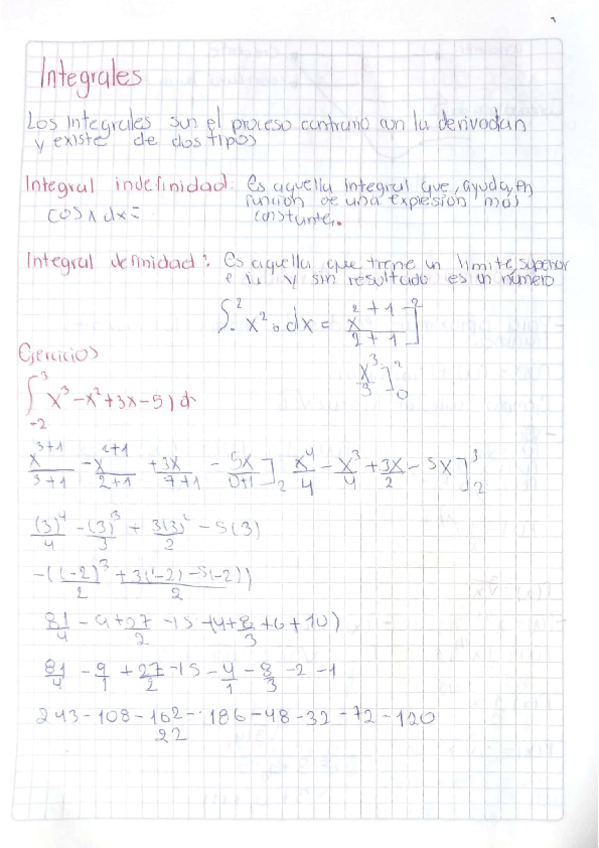 Integrales
Los Integrales son el proceso contrario con la derivadan
y existe de dos tipos
Integral indefinidad: es aquella integral que, ayuda, en
función de una expresión más
cos x dx = constante.
Integral definidad: es aquella que tiene un limite, superior
e y sin resultado es un número
x² dx = x 2+1
2+1
x³/3 ] 2 0
Ejercicios
∫ 3 -2 x³ - x² + 3x - 5) d
x 3+1 / 3+1 - x 2+1 / 2+1 + 3x / 1+1 - 5x / 0+1 ] 2 x⁴/4 - x³/4 + 3x/2 - 5x ] 3 2
(3)⁴/4 - (3)³/3 + 3(3)²/2 - 5(3)
-((-2)³/2 + 3(-2) - 5(-2))/2
81/4 - 9 + 27/2 - 15 - (4 + 8/3 + 6 + 10)
81/4 - 9/1 + 27/2 - 15 - 4/1 - 8/3 - 2 - 1
243 - 108 - 162 - 186 - 48 - 32 - 72 - 120
22